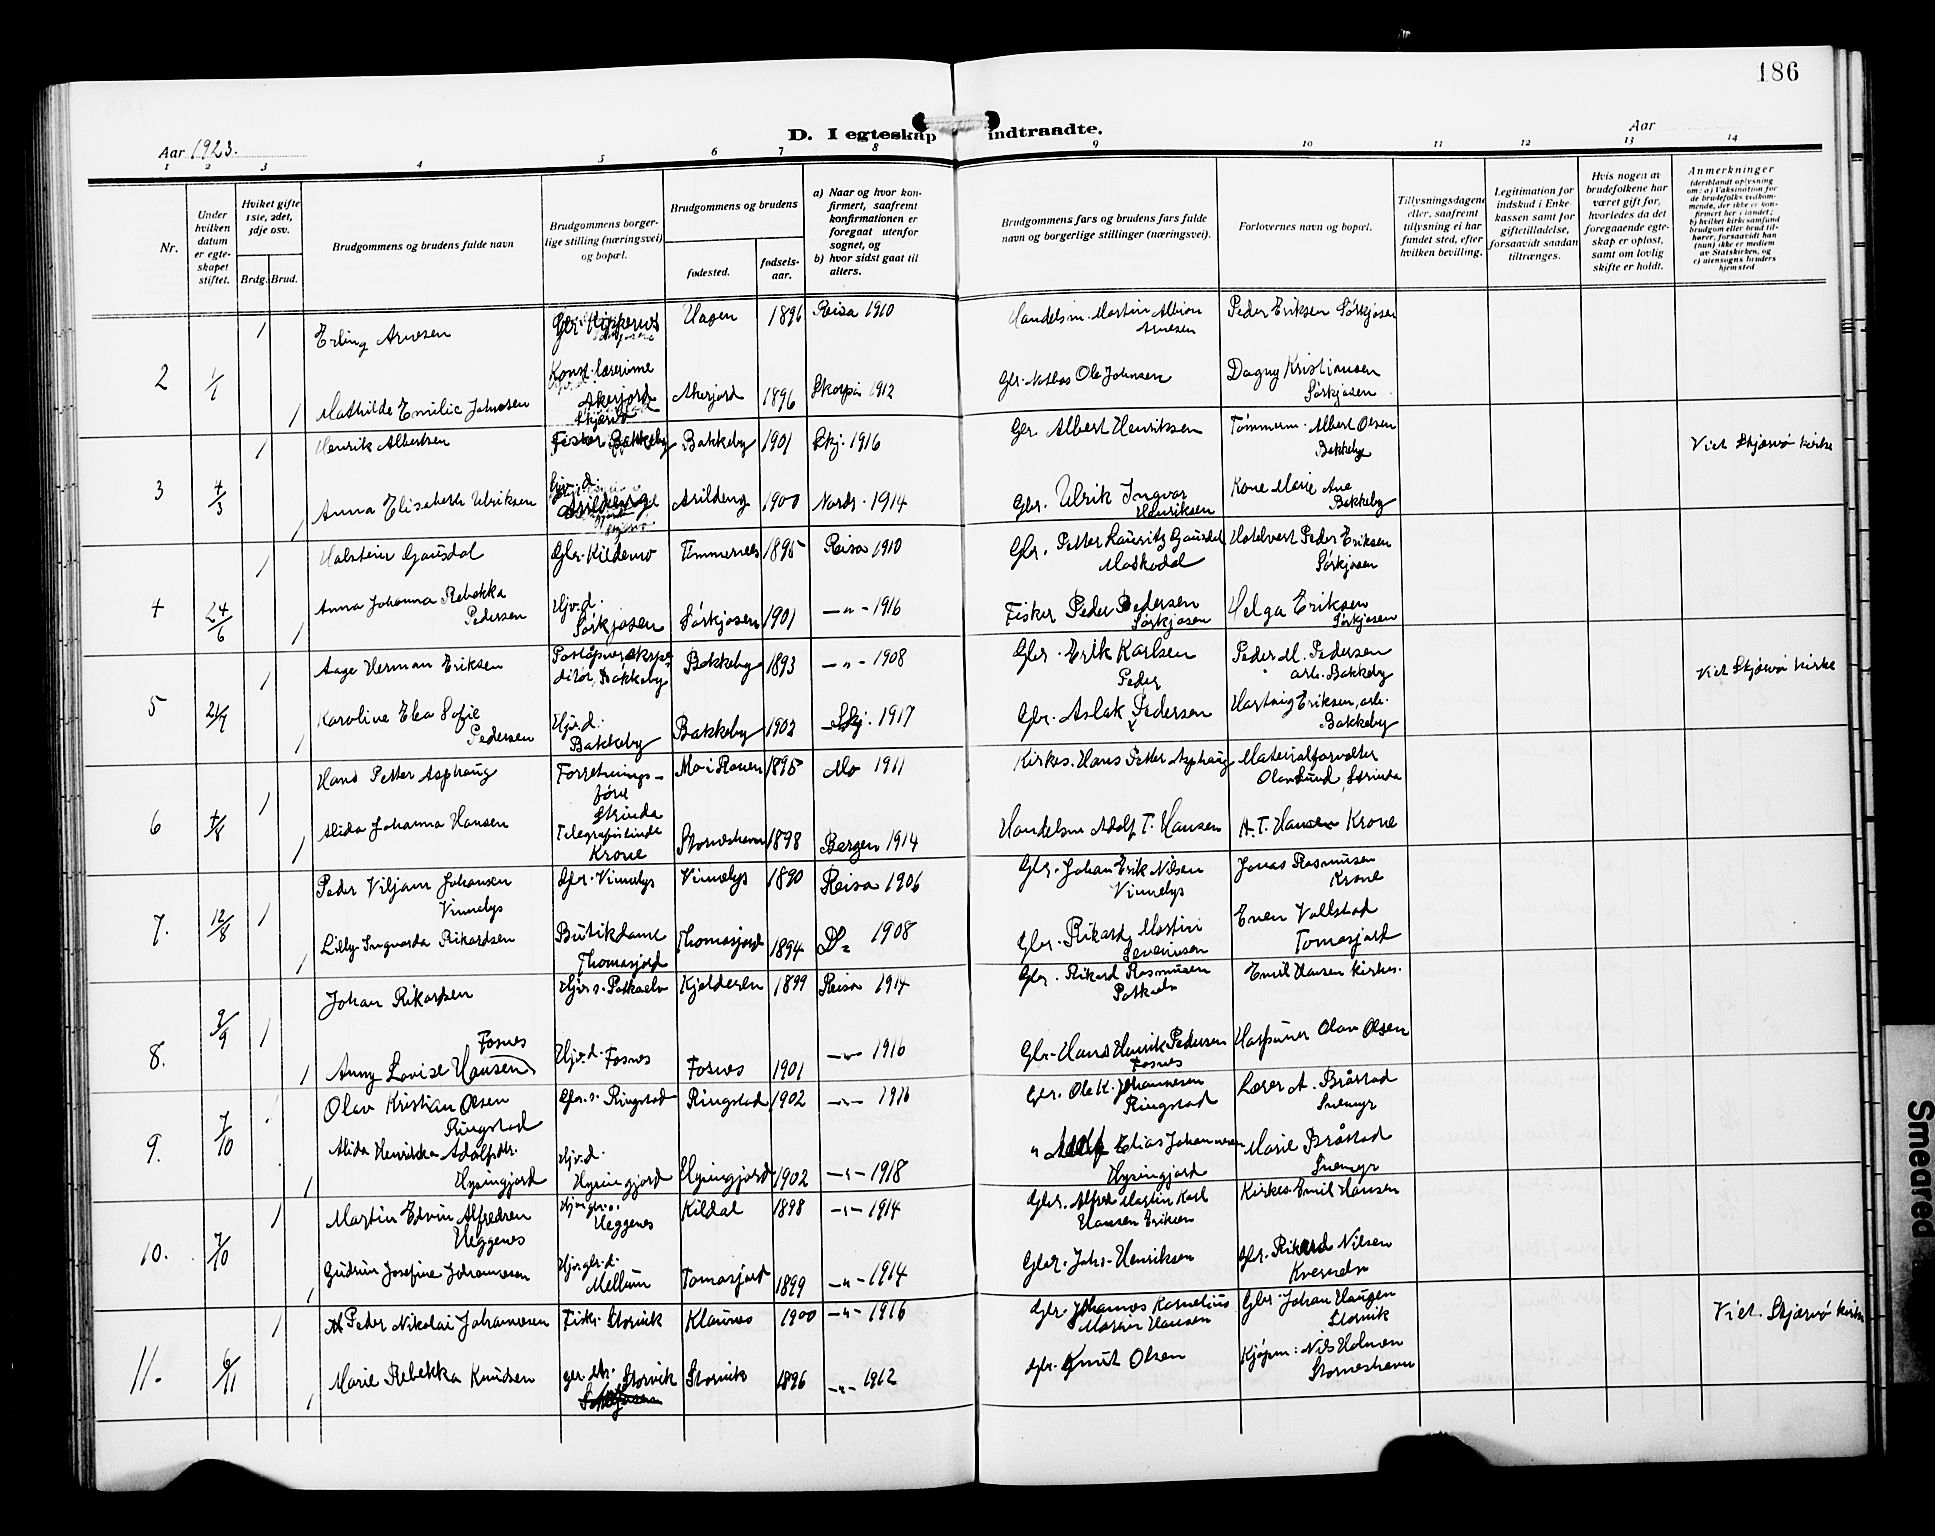 186
D. I egteskap indtraadte.
Aar 1923.
Aar
1 2 3 4 5 6 7 8 9 10 11 12 13 14
Nr.
Under hvilken datum er egteskapet stiftet.
Hviket gifte 1ste, 2det, 3dje osv.
Brdg. Brud.
Brudgommens og brudens fulde navn
Brudgommens borgerlige stilling (næringsvei) og bopæl.
Brudgommens og brudens
fødested.
fødselsaar.
a) Naar og hvor konfirmert, saafremt konfirmationen er foregaat utenfor sognet, og
b) hvor sidst gaat til alters.
Brudgommens fars og brudens fars fulde navn og borgerlige stillinger (næringsvei).
Forlovernes navn og bopæl.
Tillysningsdagene eller, saafremt tillysning ei har fundet sted, efter hvilken bevilling.
Legitimation for indskud i Enkekassen samt for giftetilladelse, forsaavidt saadan tiltrænges.
Hvis nogen av brudefolkene har været gift før, hvorledes da det foregaaende egteskap er opløst, samt om lovlig skifte er holdt.
Anmerkninger
(deriblandt oplysning om: a) Vaksination for de brudefolks vedkommende, der ikke er konfirmert her i landet; b) hvilket kirkesamfund brudgom eller brud tilhører, forsaavidt han (hun) ikke er medlem av Statskirken, og c) utensogns bruders hjemsted
2 1/1
1 Erling Arnesen Gbr. Hagen 1896 Reisa 1910 Handelsm. Martin Albion Arnesen Peder Eriksen Sørkjosen
1 Mathilde Emilie Johnsen Akerjord Akerjord 1896 1912 Gbr. Ole Johnsen Dagny Kristiansen Sørkjosen
3 4/3
1 Henrik Albertsen Fisker Bakkeby Bakkeby 1901 Skj. 1916 Gbr Albert Henriksen Tømmerm. Albert Olsen Bakkeby Viet Skjærvø kirke
1 Anna Elisabeth Ulriksen Hjv. d. Arildeng 1900 Nordr. 1914 Gbr. Ulrik Ingvar Henriksen Kone Marie Ane Bakkeby
4 24/6
1 Halstein Gausdal Gbr. Kildemo Tømmernes 1895 Reisa 1910 Gbr. Petter Lauritz Gausdal Moskodal Hotelvert Peder Eriksen Sørkjosen
1 Anna Johanna Rebekka Pedersen Hjv. d. Sørkjosen Sørkjosen 1901 —"— 1916 Fisker Peder Pedersen Sørkjosen Helga Eriksen Sørkjosen
5 21/7
1 Aage Herman Eriksen Postaapner, ekspeditør, Bakkeby Bakkeby 1893 —"— 1908 Gbr. Erik Karlsen Peder M. Pedersen arb. Bakkeby Viet Skjærvø kirke
1 Karoline Elea Sofie Pedersen Hjv. d. Bakkeby Bakkeby 1902 Skj. 1917 Gbr. Aslak Peder Pedersen Hartvig Eriksen, arb. Bakkeby
6 4/8
1 Hans Petter Asphaug Forretningsfører Strinda Mo i Ranen 1895 Mo 1911 Kirkes. Hans Petter Asphaug Materialforvalter Olav Lund, Strinda
1 Alida Johanna Hansen Telegrafistinde Krone Storneshavn 1898 Bergen 1914 Handelsm Adolf T. Hansen A. T. Hansen Krone
7. 12/8
1 Peder Viljam Johansen Vinnelys Gbr. Vinnelys Vinnelys 1890 Reisa 1906 Gbr. Johan Erik Nilsen Vinnelys Jonas Rasmussen Krone
1 Lilly Ingvarda Rikardsen Butikdame Thomasjord Thomasjord 1894 Do 1908 Gbr. Rikard Martin Severinsen Even Vallstad Tomasjord
8. 2/9
1 Johan Rikardsen Hjv. s. Potkaelv Kjelderen 1899 Reisa 1914 Gbr. Rikard Rasmussen Potkaelv Emil Hansen kirkes.
1 Anny Lovise Hansen Fosnes Hjv. d. Fosnes Fosnes 1901 —"— 1916 Gbr. Hans Henrik Pedersen Fosnes Olav Olsen
9. 7/10
1 Olav Kristian Olsen Ringstad Gbr. s. Ringstad Ringstad 1902 —"— 1916 Gbr. Ole K. Johannesen Ringstad Lærer A. Bråstad Snemyr
1 Alida Henrikka Adolfsdtr. Hysingjord Hjv. d. Hysingjord Hysingjord 1902 —"— 1918 " Adolf Elias Johannesen Hysingjord Marie Bråstad Snemyr
10. 7/10
1 Martin Edvin Alfredsen Heggenes Heggenes Kildal 1898 —"— 1914 Gbr. Alfred Martin Karl Hansen Eriksen Kirkes. Emil Hansen
1 Gudrun Josefine Johannesen Hjv. gbr. d. Mellum Tomasjord 1899 —"— 1914 Gbr. Johs. Henriksen Gbr. Rikard Nilsen Kvesmelv
11. 6/11
1 Peder Nikolai Johannesen Fisker Storvik Klaunes 1900 —"— 1916 Gbr Johannes Kornelius Martin Hansen Gbr. Johan Haugen Storvik Viet. Skjærvø kirke
1 Marie Rebekka Knudsen gbr. dtr. Storvik Storvik 1896 —"— 1912 Gbr. Knut Olsen Kjøpm: Nils Holmen Storneshavn
Smeared